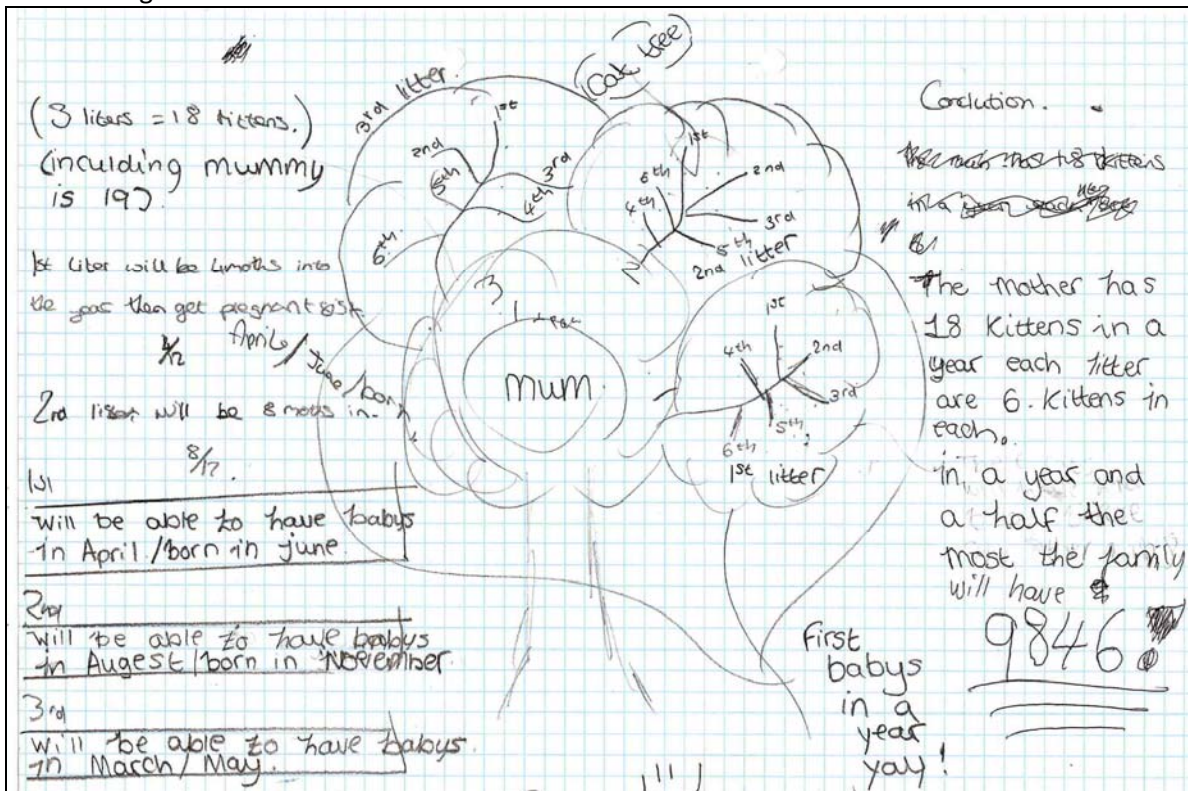 (3 liters = 18 kittens.)
(inculding mummy
is 19)
1st Liter will be 4moths into
the year then get pregnant
4/12
Aprile/June/born
2nd liter will be 8 moths in.
8/12.
1st
will be able to have babys
in April/born in june.
2nd
will be able to have babys
in Augest/born in November.
3rd
will be able to have babys.
in March/May.
Cat tree
3rd litter.
1st
2nd
3rd
4th
5th
6th
1st
2nd
3rd
4th
5th
6th
2nd litter
3
mum
1st
2nd
3rd
4th
5th
6th
1st litter
first
babys
in a
year
yay!
Conclution.
The mother has
18 Kittens in a
year each litter
are 6. Kittens in
each.
in a year and
a half the
most the family
will have
9846!